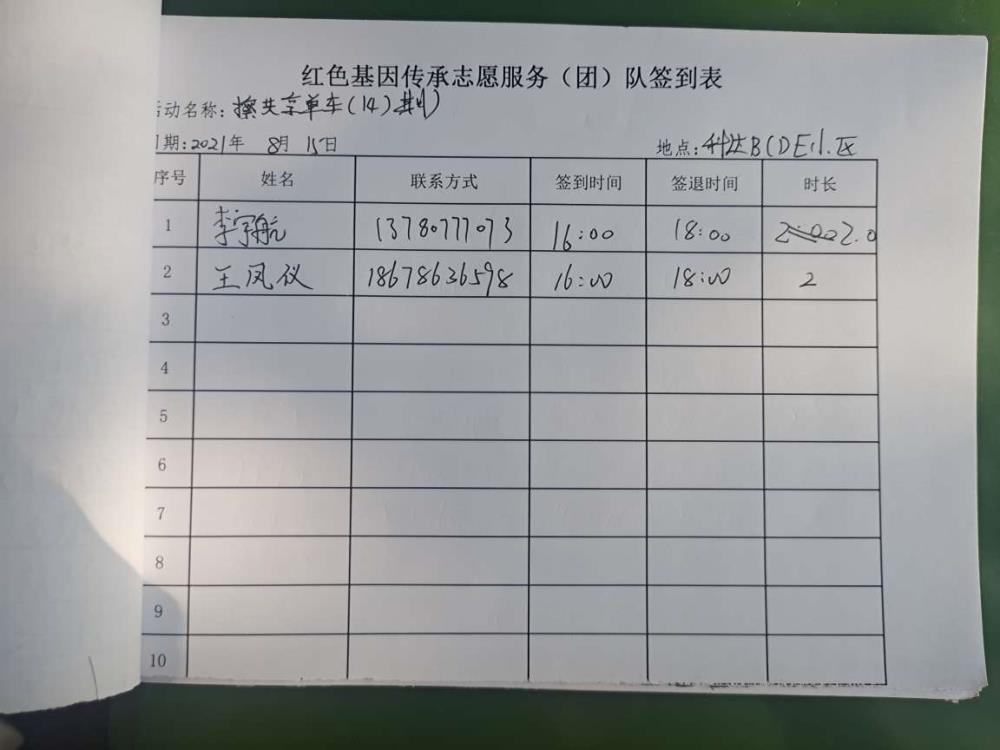 红色基因传承志愿服务（团）队签到表
活动名称：擦共享单车(14)
日期:2021年 8月 15日 地点: BCDE小区
序号 姓名 联系方式 签到时间 签退时间 时长
1 李宇航 13780777073 16:00 18:00 2.0
2 王凤仪 18678636598 16:00 18:00 2
3
4
5
6
7
8
9
10